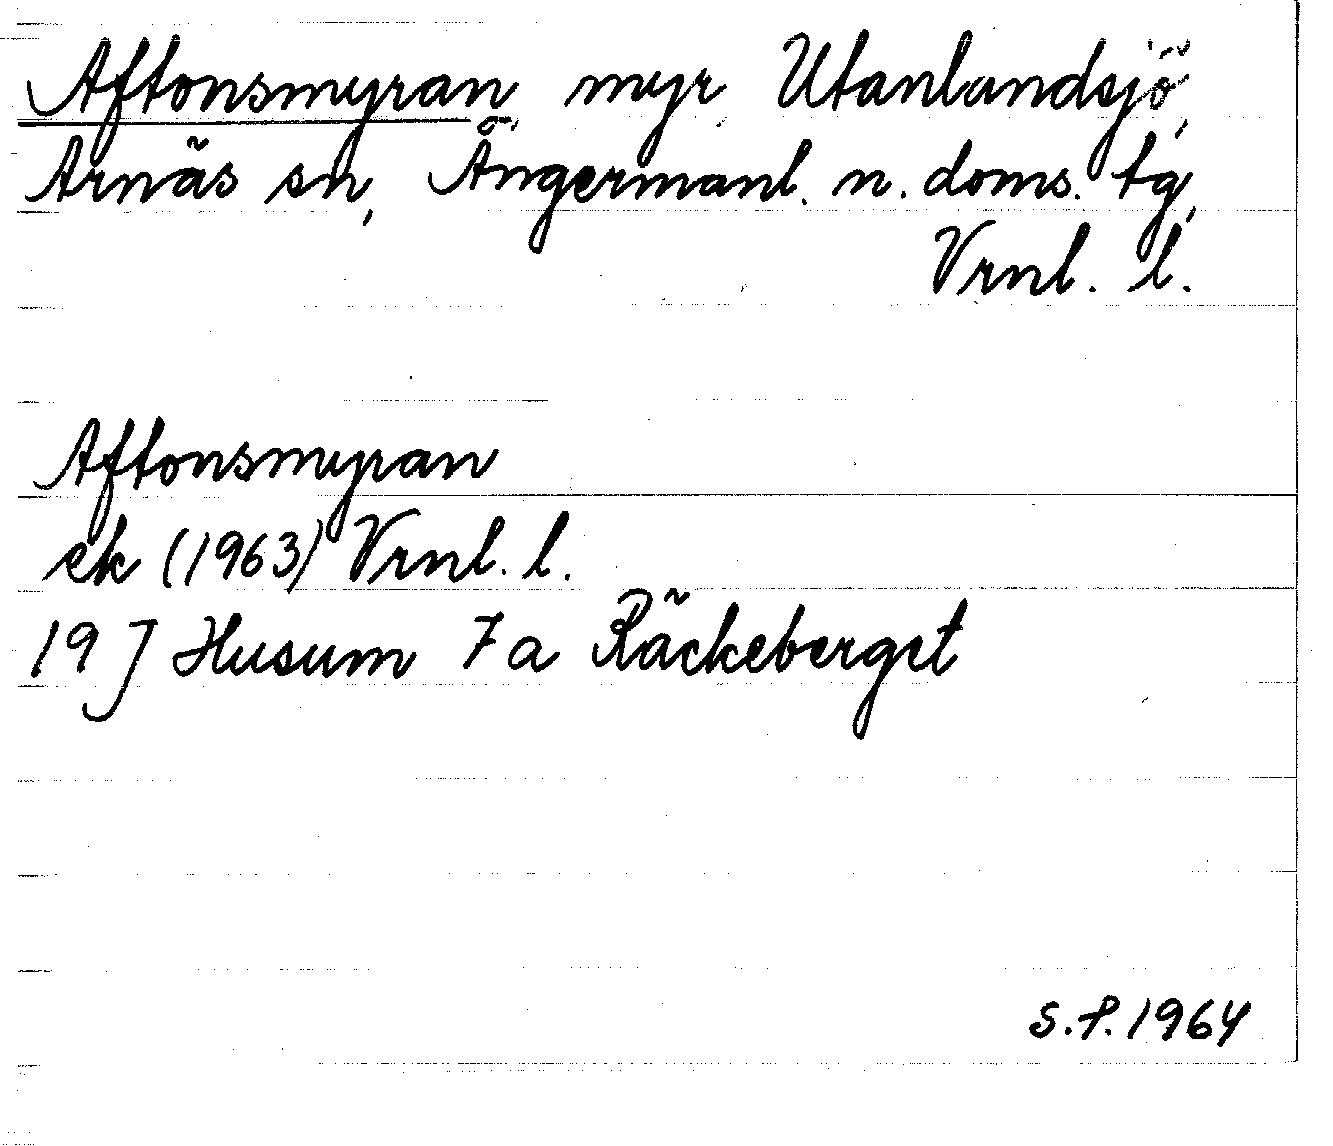 Aftonsmyran, myr, Utanlandsjö,
Arnäs sn, Ångermanl. n. doms. tg,
Vrnl. l.
Aftonsmyran
ek (1963) Vrnl. l.
19 J Husum 7a Räckeberget
S.P. 1964